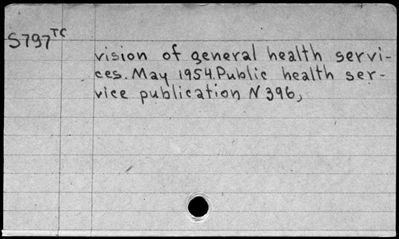 S797TC
vision of general health servi-
ces. May 1954. Public health ser-
vice publication N 396,